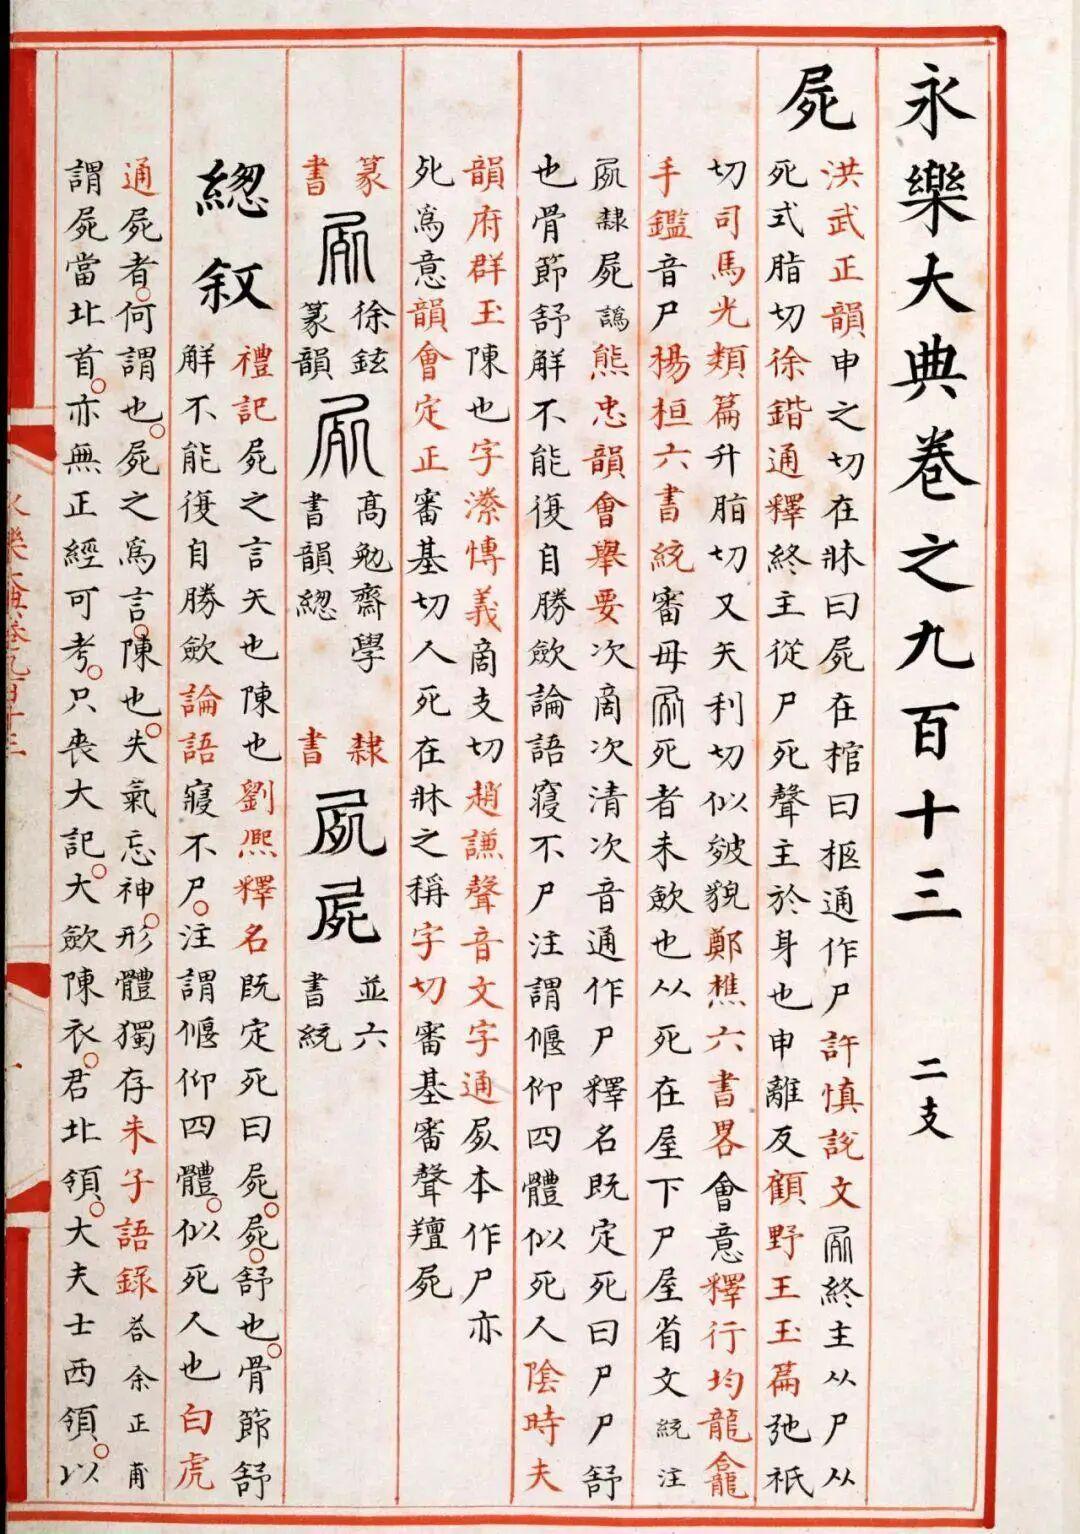 永樂大典卷之九百十三　二支
屍
洪武正韻申之切在牀曰屍在棺曰柩通作尸許慎說文𡰥終主从尸从
死式脂切徐鍇通釋終主從尸死聲主於身也申離反顧野王玉篇弛祇
切司馬光類篇升脂切又矢利切似皴貌鄭樵六書畧會意釋行均龍龕
手鑑音尸楊桓六書統審母𡰥死者未歛也从死在屋下尸屋省文統注
𡰥隸屍譌熊忠韻會舉要次啇次清次音通作尸釋名既定死曰尸尸舒
也骨節舒解不能復自勝歛論語寢不尸注謂偃仰四體似死人陰時夫
韻府群玉陳也字潫愽義啇支切趙謙聲音文字通𡰥本作尸亦
死爲意韻會定正審基切人死在牀之稱字切審基審聲羶屍
篆書
屍
徐鉉篆韻
屍
高勉齋學書韻緫
隸書
屍屍
並六書統
緫叙
禮記屍之言矢也陳也劉熈釋名既定死曰屍屍舒也骨節舒
解不能復自勝歛論語寢不尸注謂偃仰四體似死人也白虎
通屍者何謂也屍之爲言陳也失氣忘神形體獨存朱子語錄荅余正甫
謂屍當北首亦無正經可考只喪大記大歛陳衣君北領大夫士西領以
永樂大典卷九百十三
一